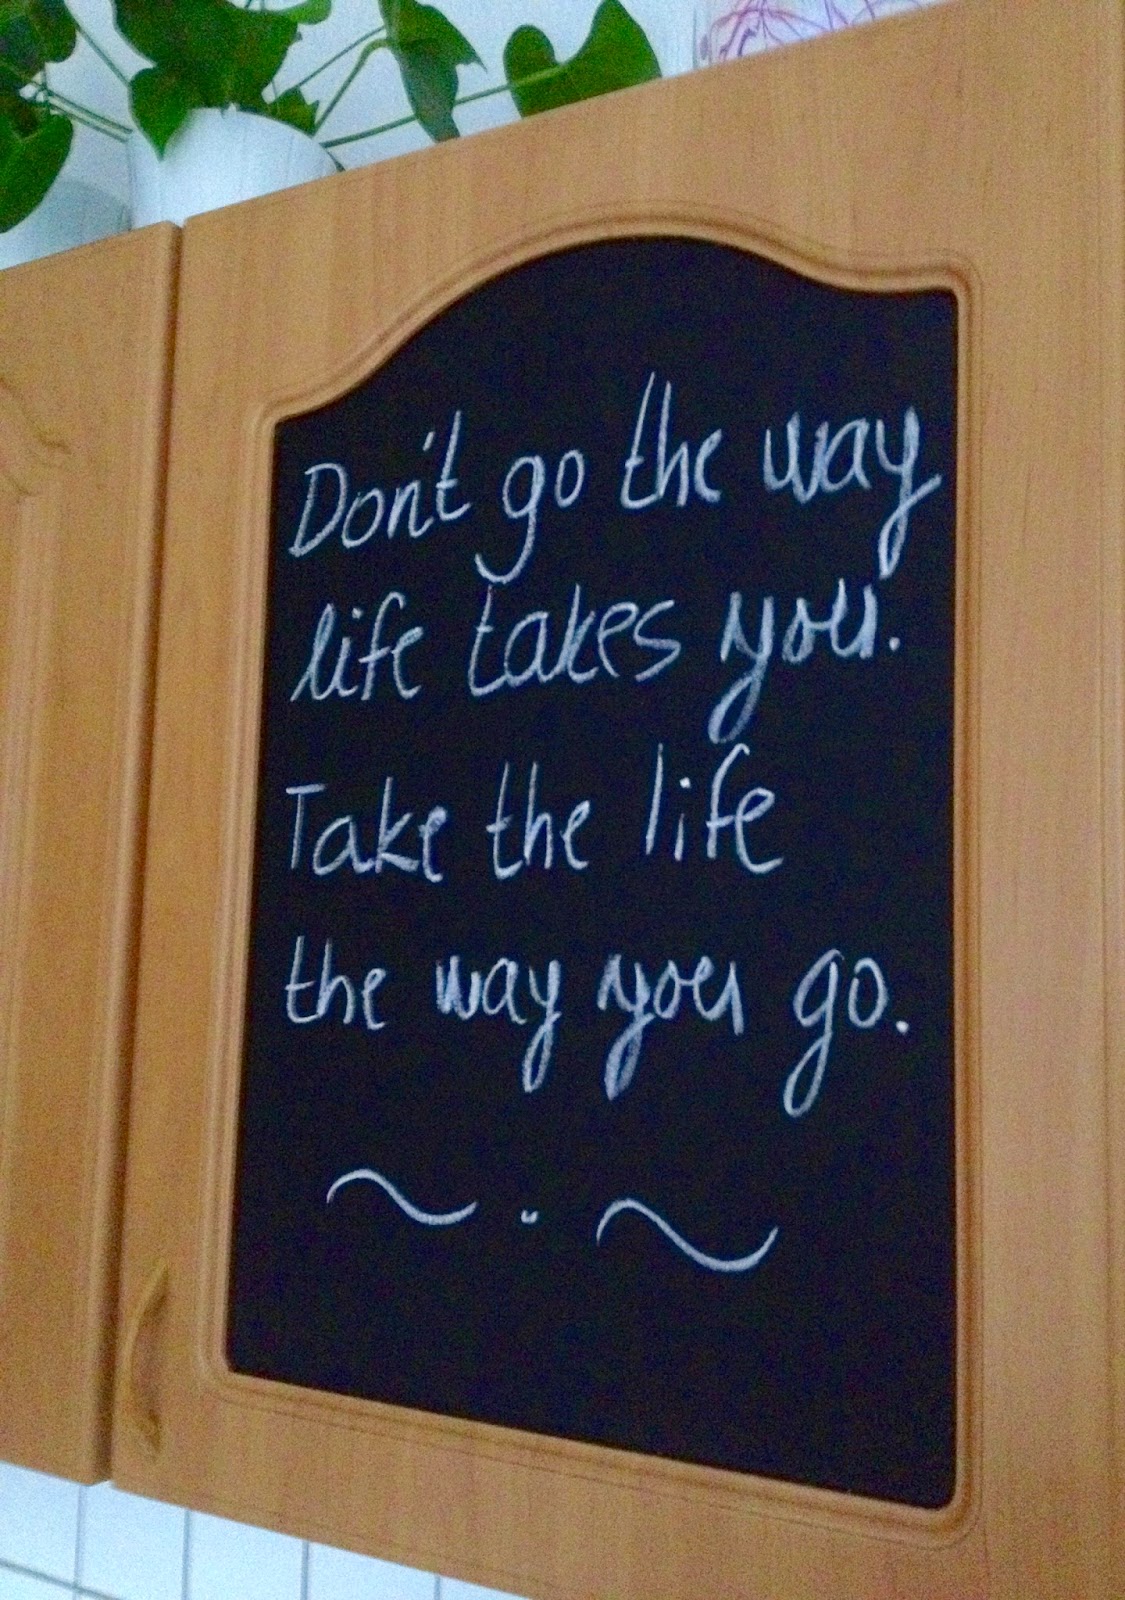 Don't go the way
life takes you.
Take the life
the way you go.